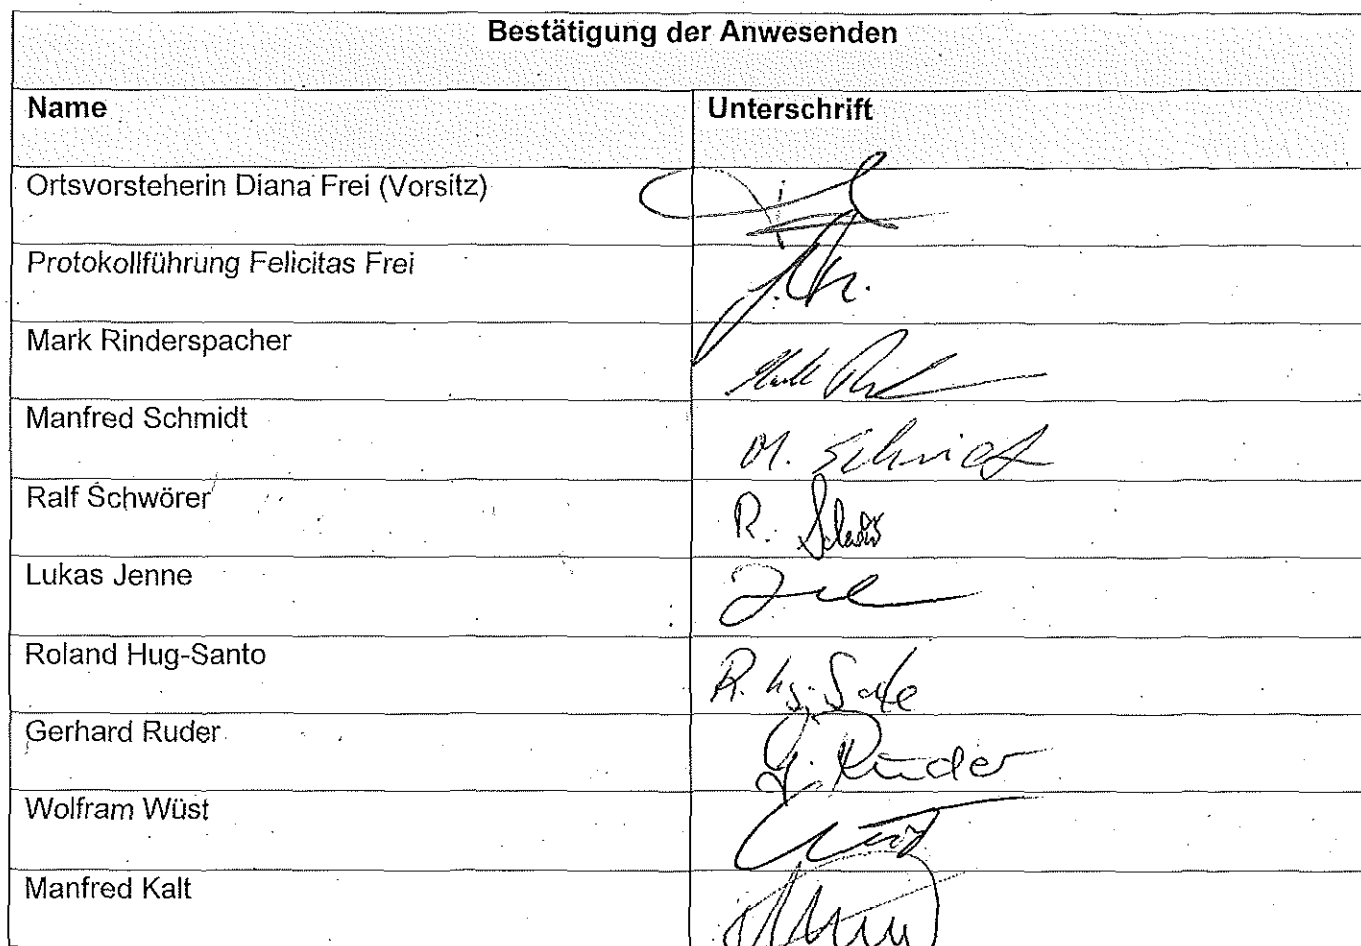 Bestätigung der Anwesenden
Name Unterschrift
Ortsvorsteherin Diana Frei (Vorsitz)
Protokollführung Felicitas Frei
Mark Rinderspacher
Manfred Schmidt M. Schmidt
Ralf Schwörer R.
Lukas Jenne
Roland Hug-Santo R.
Gerhard Ruder G. Ruder
Wolfram Wüst Wüst
Manfred Kalt